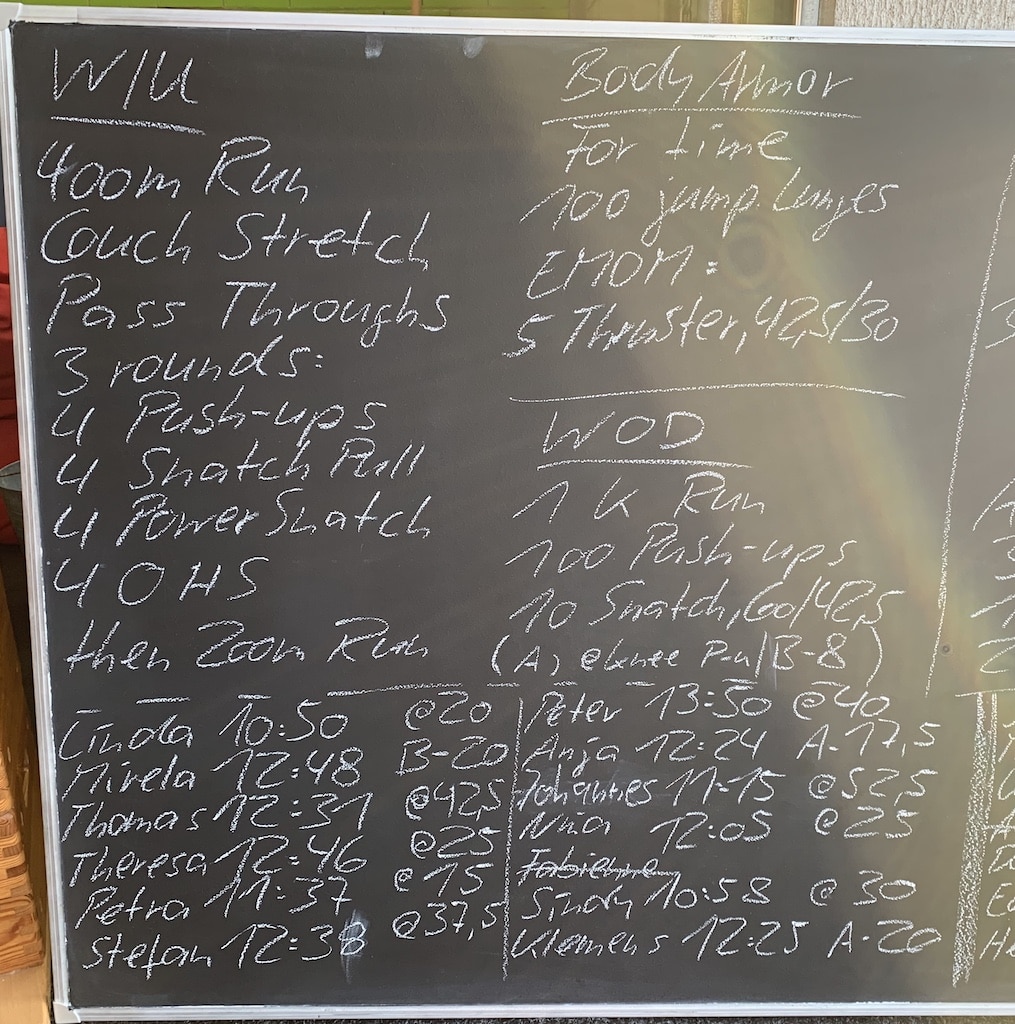 W/U
400m Run
Couch Stretch
Pass Throughs
3 rounds:
4 Push-ups
4 Snatch Pull
4 Power Snatch
4 OHS
then 200m Run
Body Armor
For time
100 jump. Lunges
EMOM:
5 Thruster, 42,5/30
WOD
1 K Run
100 Push-ups
10 Snatch, 60/42,5
(A) @knee P-u/B-8)
Linda 10:50 @20
Mirela 12:48 B-20
Thomas 12:31 @42,5
Theresa 12:46 @25
Petra 11:37 @15
Stefan 12:38 @37,5
Peter 13:50 @40
Anja 12:24 A-17,5
Johannes 11-15 @52,5
Nina 12:05 @25
Fabienne
Sindy 10:58 @30
Klemens 12:25 A-20